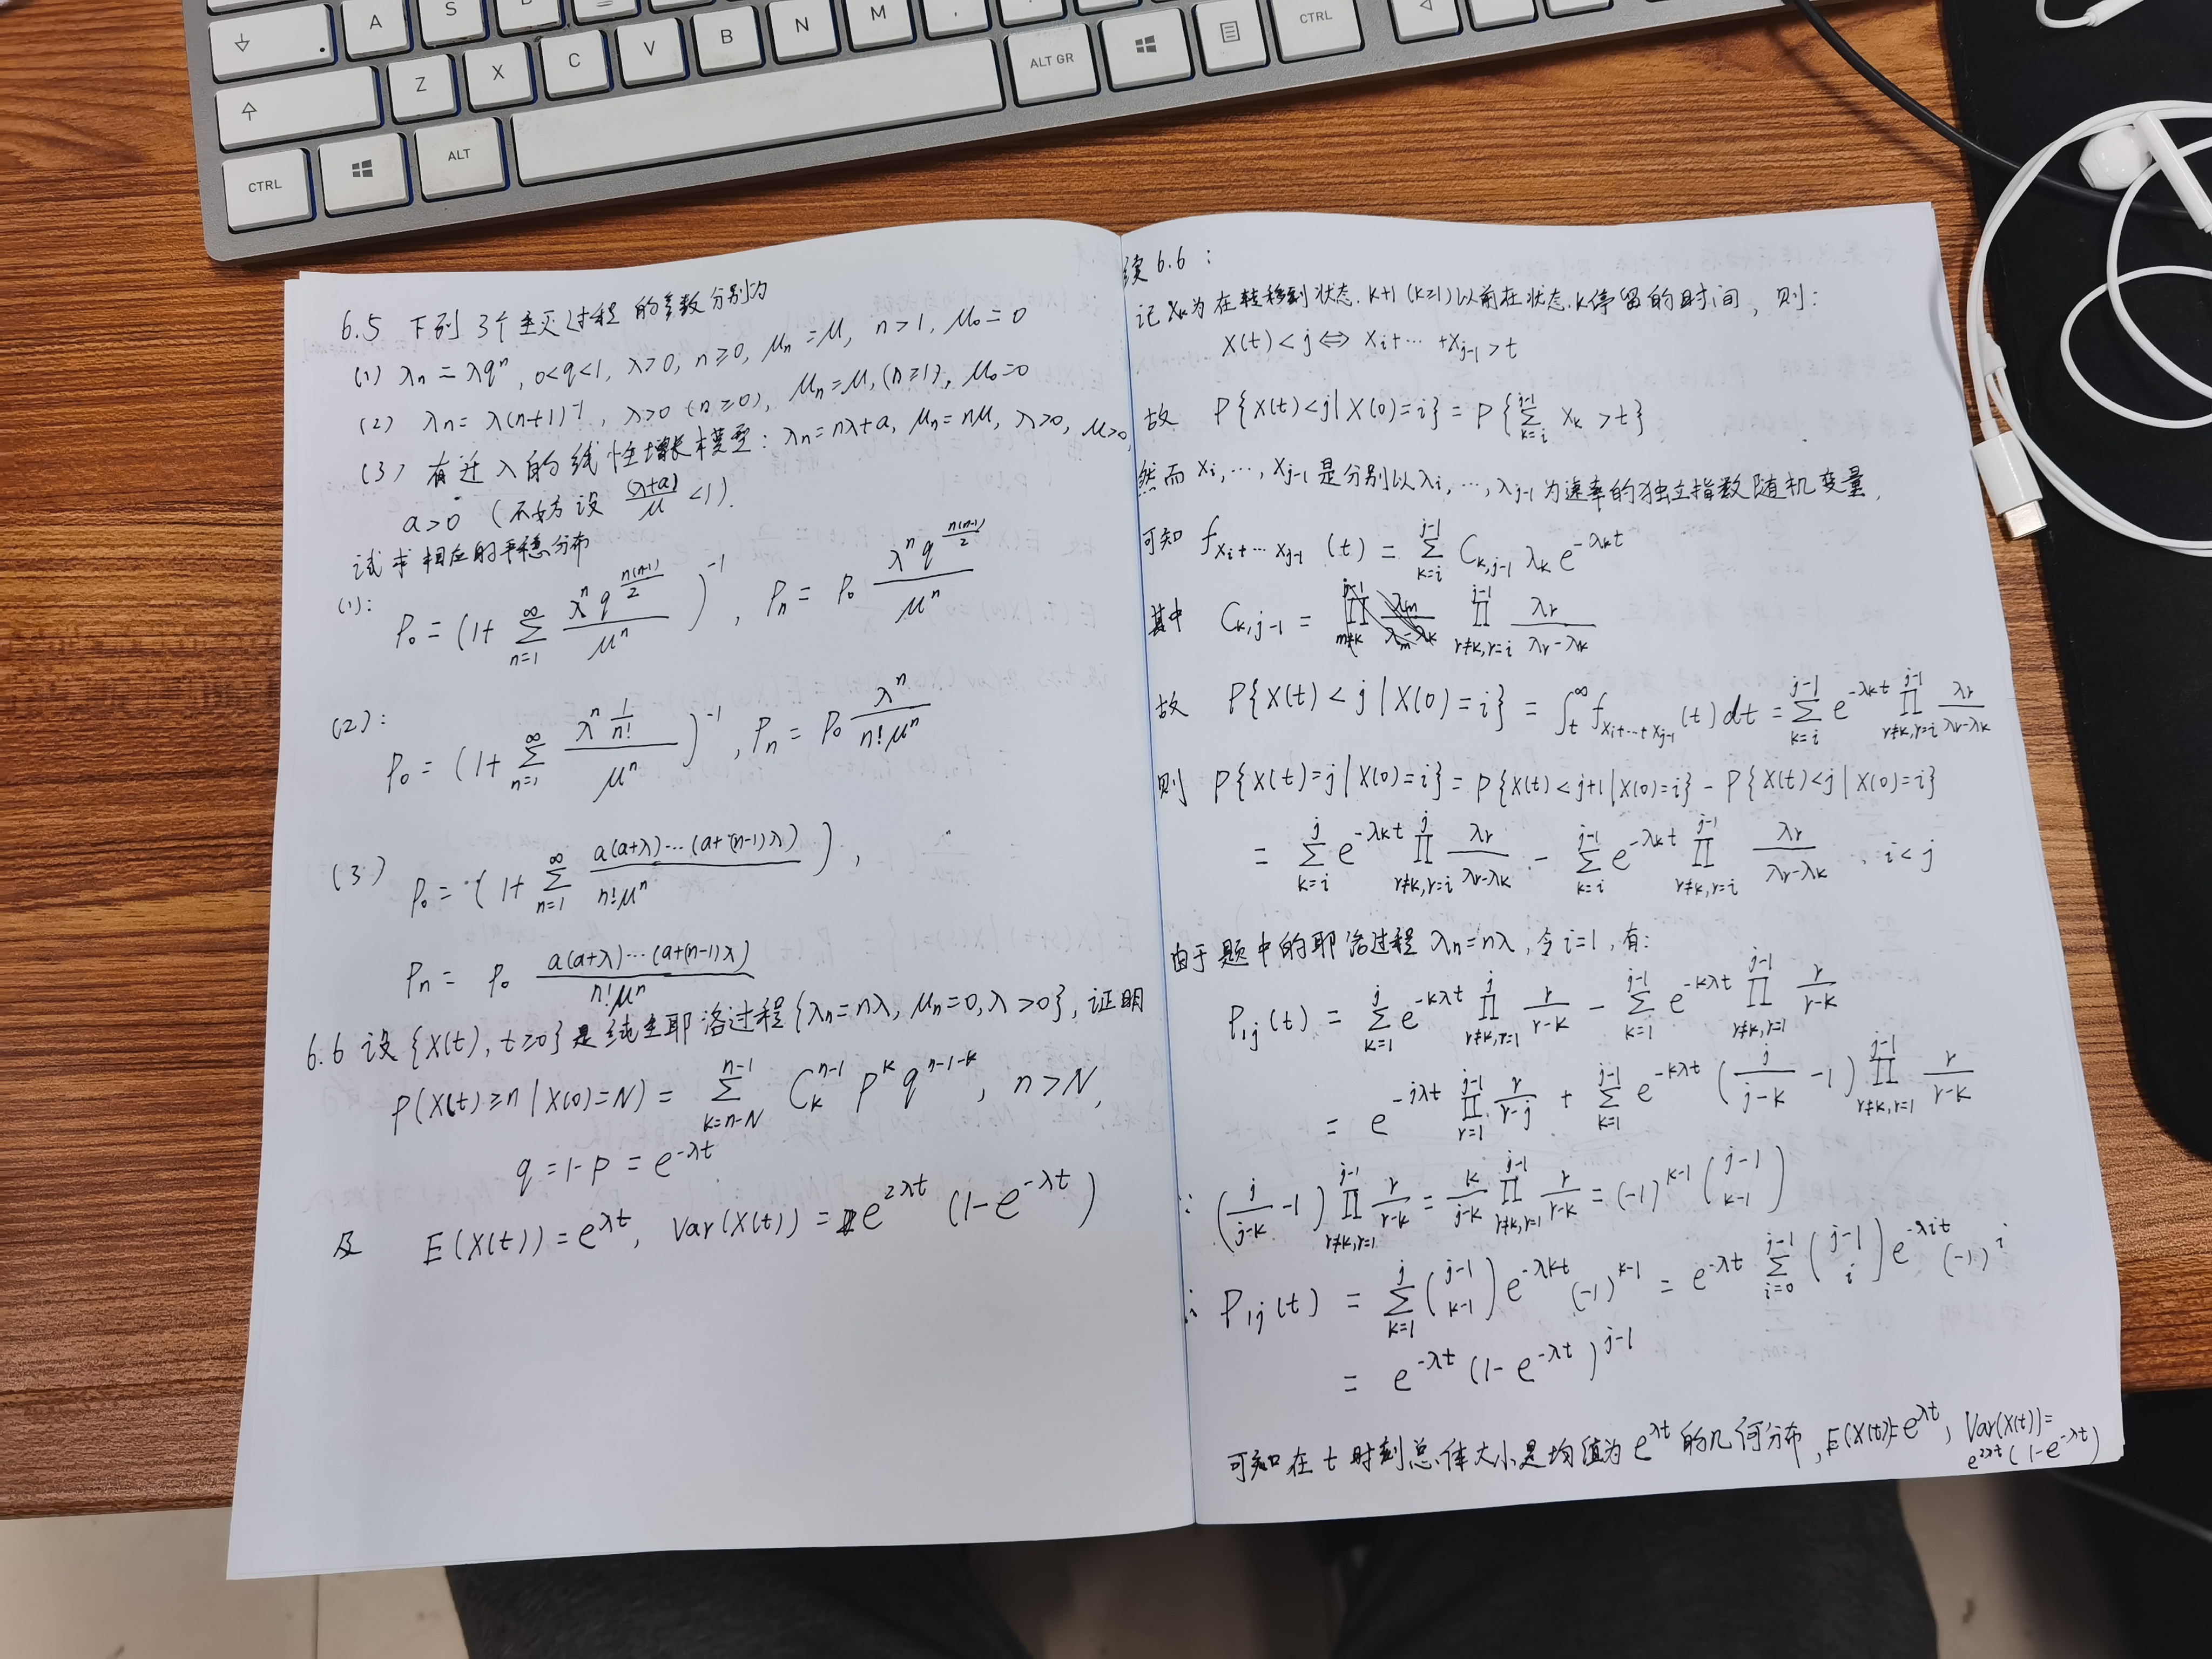 A S
Z X C V B N M , ALT GR CTRL
CTRL ALT
6.5 下列3个生灭过程的参数分别为
(1) λn = λqⁿ, 0<q<1, λ>0, n≥0, μn = μ, n>1, μ0 = 0
(2) λn = λ(n+1)⁻¹, λ>0 (n≥0), μn = μ, (n≥1), μ0 = 0
(3) 有迁入的线性增长模型: λn = nλ+a, μn = nμ, λ>0, μ>0,
a>0 (不妨设 (λ+a)/μ <1).
试求相应的平稳分布
(1): P0 = (1+ Σ_{n=1}^{∞} λⁿ q^{n(n-1)/2} / μⁿ)⁻¹, Pn = P0 λⁿ q^{n(n-1)/2} / μⁿ
(2): P0 = (1+ Σ_{n=1}^{∞} λⁿ (1/n!) / μⁿ)⁻¹, Pn = P0 λⁿ / (n! μⁿ)
(3) P0 = (1+ Σ_{n=1}^{∞} a(a+λ)⋯(a+(n-1)λ) / (n! μⁿ)),
Pn = P0 a(a+λ)⋯(a+(n-1)λ) / (n! μⁿ)
6.6 设{X(t), t≥0}是纯生耶洛过程{λn=nλ, μn=0, λ>0}, 证明
P(X(t)≥n | X(0)=N) = Σ_{k=n-N}^{n-1} C_k^{n-1} p^k q^{n-1-k}, n>N,
q = 1-p = e^{-λt}
及 E(X(t)) = e^{λt}, Var(X(t)) = e^{2λt} (1-e^{-λt})
续6.6:
记Xk为在转移到状态k+1 (k≥1)以前在状态k停留的时间, 则:
X(t)<j ⇔ Xi+⋯+X_{j-1}>t
故 P{X(t)<j | X(0)=i} = P{Σ_{k=i}^{j-1} Xk >t}
然而 Xi, ⋯, X_{j-1} 是分别以λi, ⋯, λ_{j-1}为速率的独立指数随机变量,
可知 f_{Xi+⋯X_{j-1}} (t) = Σ_{k=i}^{j-1} C_{k,j-1} λk e^{-λkt}
其中 C_{k,j-1} = Π_{r≠k,r=i}^{j-1} λr/(λr-λk)
故 P{X(t)<j | X(0)=i} = ∫_t^∞ f_{Xi+⋯+X_{j-1}}(t)dt = Σ_{k=i}^{j-1} e^{-λkt} Π_{r≠k,r=i}^{j-1} λr/(λr-λk)
则 P{X(t)=j | X(0)=i} = P{X(t)<j+1 | X(0)=i} - P{X(t)<j | X(0)=i}
= Σ_{k=i}^{j} e^{-λkt} Π_{r≠k,r=i}^{j} λr/(λr-λk) - Σ_{k=i}^{j-1} e^{-λkt} Π_{r≠k,r=i}^{j-1} λr/(λr-λk) , i<j
由于题中的耶洛过程 λn=nλ, 令i=1, 有:
P1j(t) = Σ_{k=1}^{j} e^{-kλt} Π_{r≠k,r=1}^{j} r/(r-k) - Σ_{k=1}^{j-1} e^{-kλt} Π_{r≠k,r=1}^{j-1} r/(r-k)
= e^{-jλt} Π_{r=1}^{j-1} r/(r-j) + Σ_{k=1}^{j-1} e^{-kλt} (j/(j-k) -1) Π_{r≠k,r=1}^{j-1} r/(r-k)
∵ (j/(j-k) -1) Π_{r≠k,r=1}^{j-1} r/(r-k) = k/(j-k) Π_{r≠k,r=1}^{j-1} r/(r-k) = (-1)^{k-1} (j-1 k-1)
∴ P1j(t) = Σ_{k=1}^{j} (j-1 k-1) e^{-λkt} (-1)^{k-1} = e^{-λt} Σ_{i=0}^{j-1} (j-1 i) e^{-λit} (-1)^i
= e^{-λt} (1-e^{-λt})^{j-1}
可知在t时刻总体大小是均值为e^{λt}的几何分布, E(X(t))=e^{λt}, Var(X(t))=
e^{2λt}(1-e^{-λt})